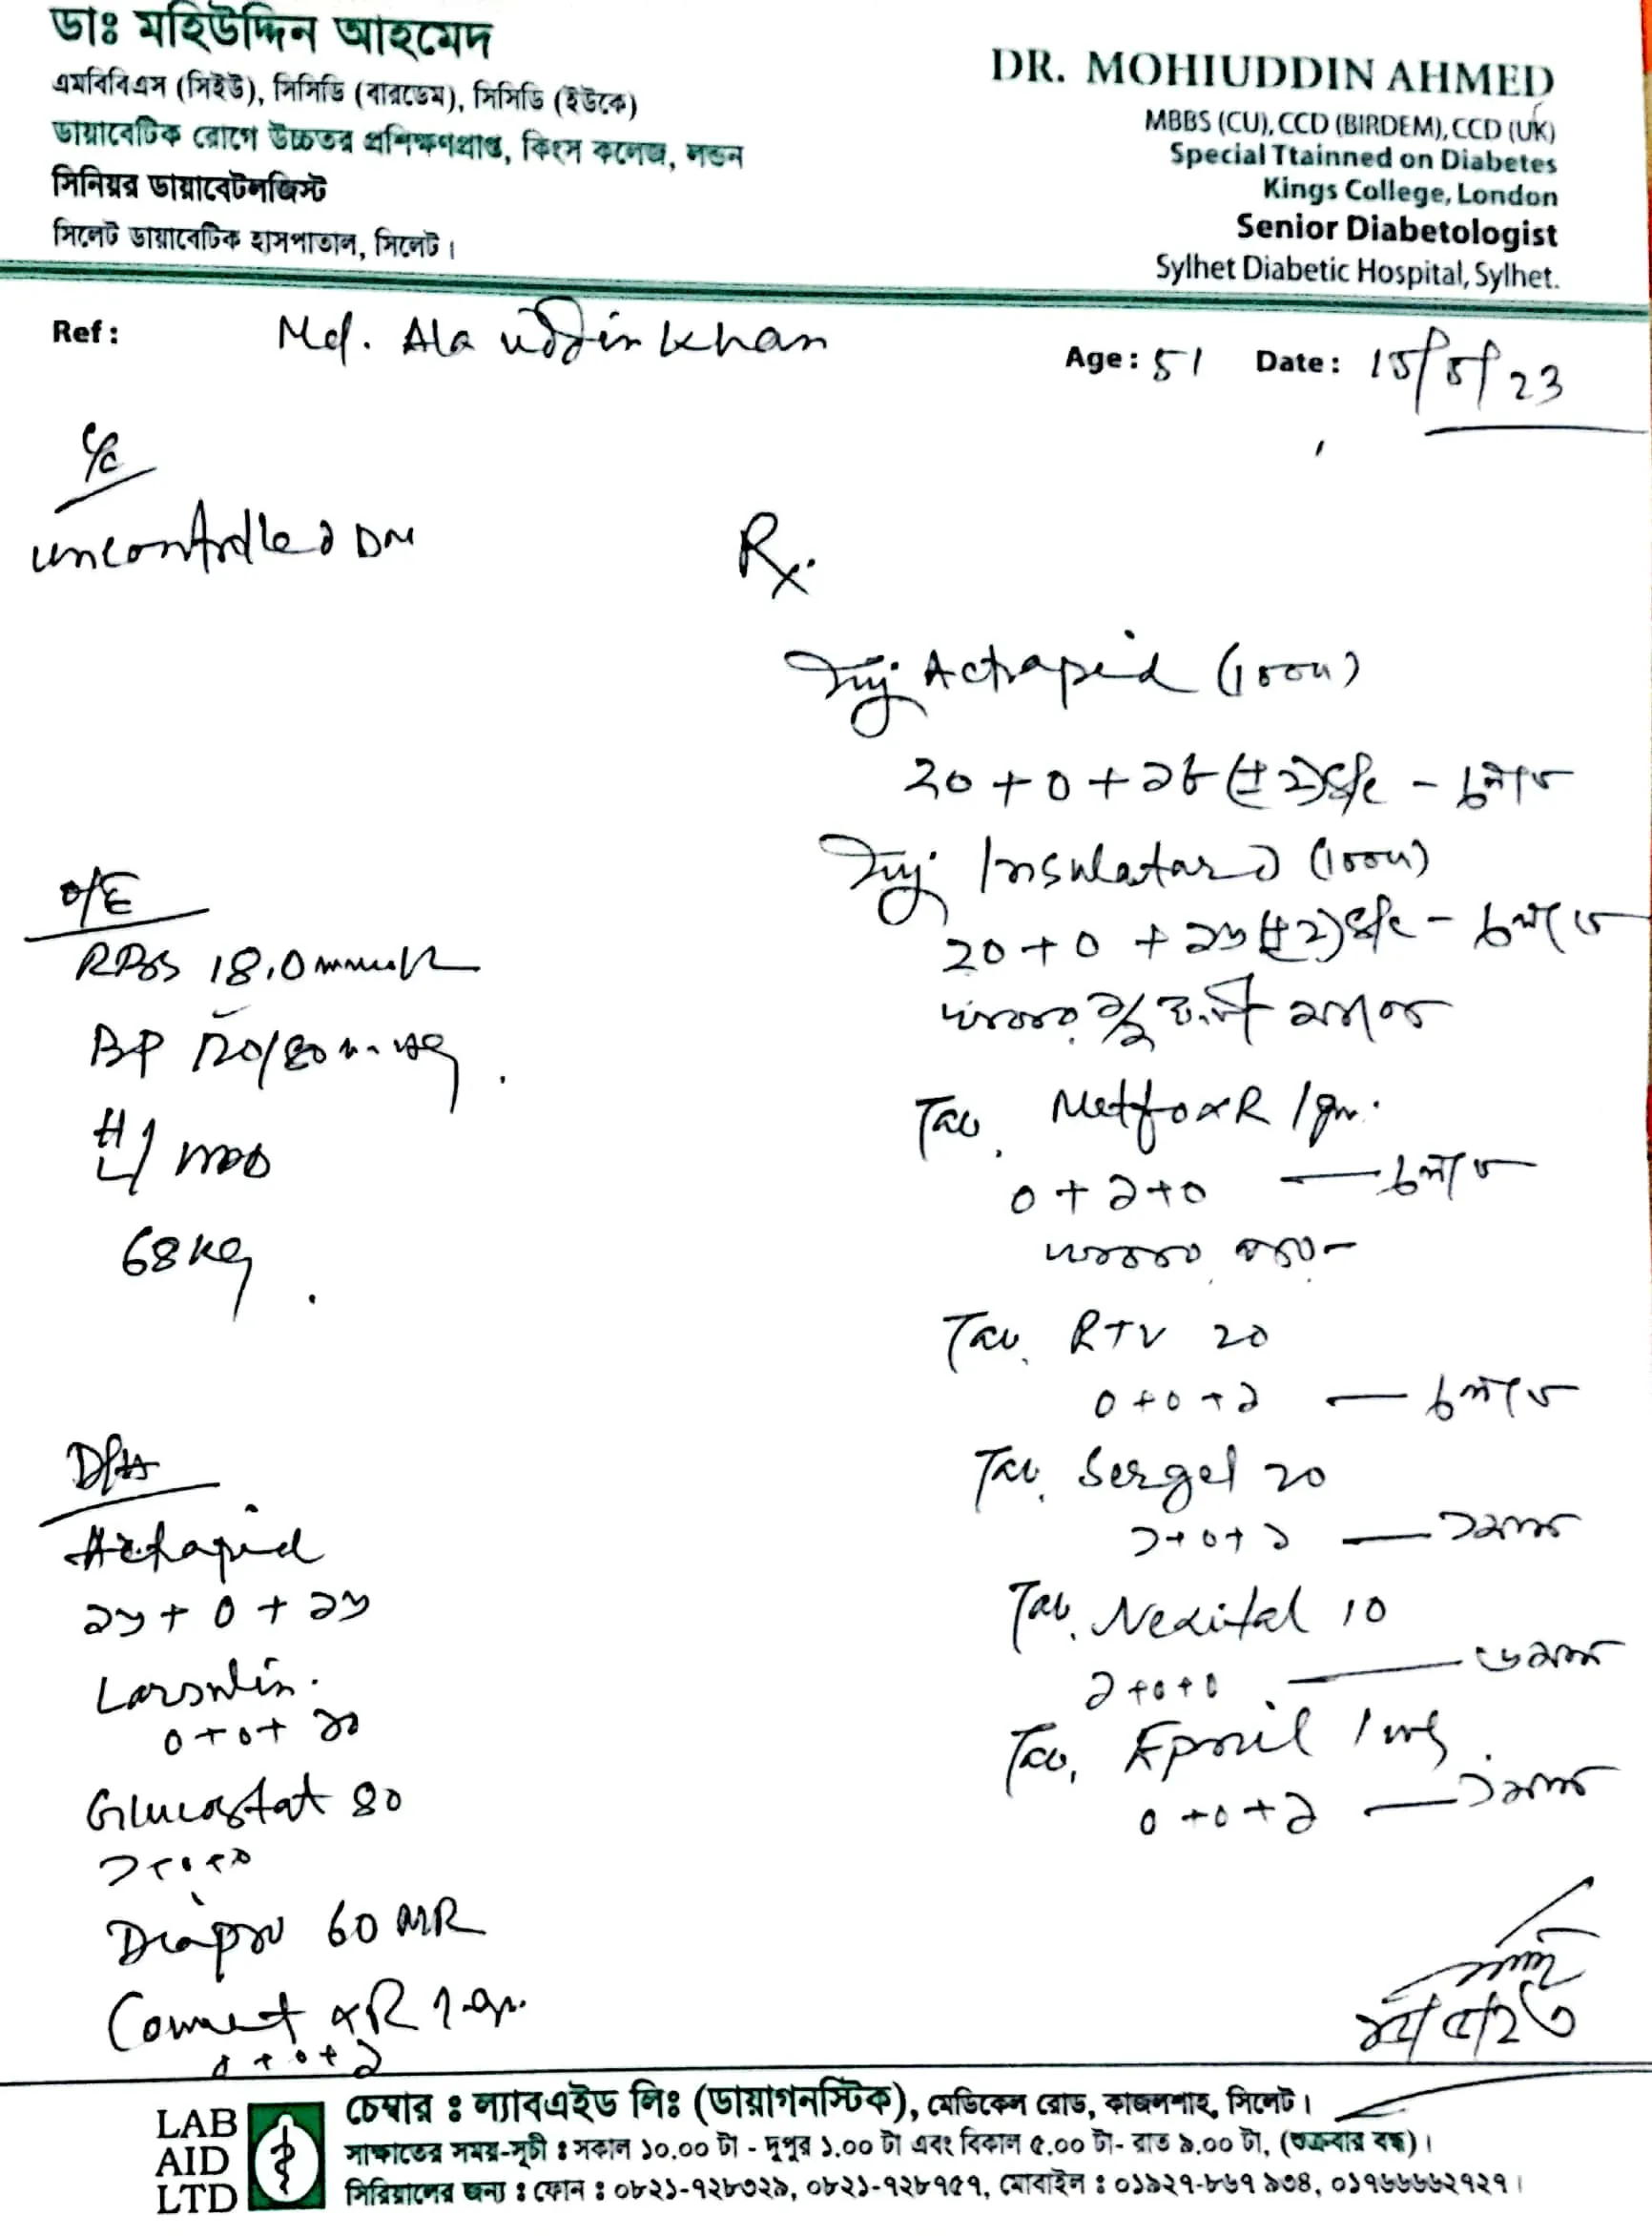 ডাঃ মহিউদ্দিন আহমেদ
এমবিবিএস (সিইউ), সিসিডি (বারডেম), সিসিডি (ইউকে)
ডায়াবেটিক রোগে উচ্চতর প্রশিক্ষণপ্রাপ্ত, কিংস কলেজ, লন্ডন
সিনিয়র ডায়াবেটলজিস্ট
সিলেট ডায়াবেটিক হাসপাতাল, সিলেট।
DR. MOHIUDDIN AHMED
MBBS (CU), CCD (BIRDEM), CCD (UK)
Special Ttainned on Diabetes
Kings College, London
Senior Diabetologist
Sylhet Diabetic Hospital, Sylhet.
Ref : Md. Ala uddin khan Age : 51 Date : 15/5/23
C/C
uncontrolled DM
O/E
RBS 18.0 mmol/l
BP 120/80 mmHg
68 kg
D/H
Actrapid
Larsulin
0+0+২০
Glucostat 80
Diapro 60 MR
Comet XR 1 gm
0+0+১
Rx
Inj Actrapid (100u)
20 + 0 + ১৮ (± 2) S/C - চলবে
Inj Insulatard (100u)
20 + 0 + ১৬ (± 2) S/C - চলবে
Tab. Metfo XR 1gm.
0 + ১ + 0 — চলবে
Tab. RTV 20
0 + 0 + ১ — চলবে
Tab. Sergel 20
১ + 0 + ১ — ১মাস
Tab. Nexital 10
১ + 0 + 0 — ৩মাস
Tab. 1 mg
0 + 0 + ১ — ১মাস
LAB
AID
LTD
চেম্বার : ল্যাবএইড লিঃ (ডায়াগনস্টিক), মেডিকেল রোড, কাজলশাহ, সিলেট।
সাক্ষাতের সময়-সূচী : সকাল ১০.০০ টা - দুপুর ১.০০ টা এবং বিকাল ৫.০০ টা- রাত ৯.০০ টা, (শুক্রবার বন্ধ)।
সিরিয়ালের জন্য : ফোন : ০৮২১-৭২৮৩২৯, ০৮২১-৭২৮৭৫৭, মোবাইল : ০১৯২৭-৮৬৭ ৯৩৪, ০১৭৬৬৬৬২৭২৭।